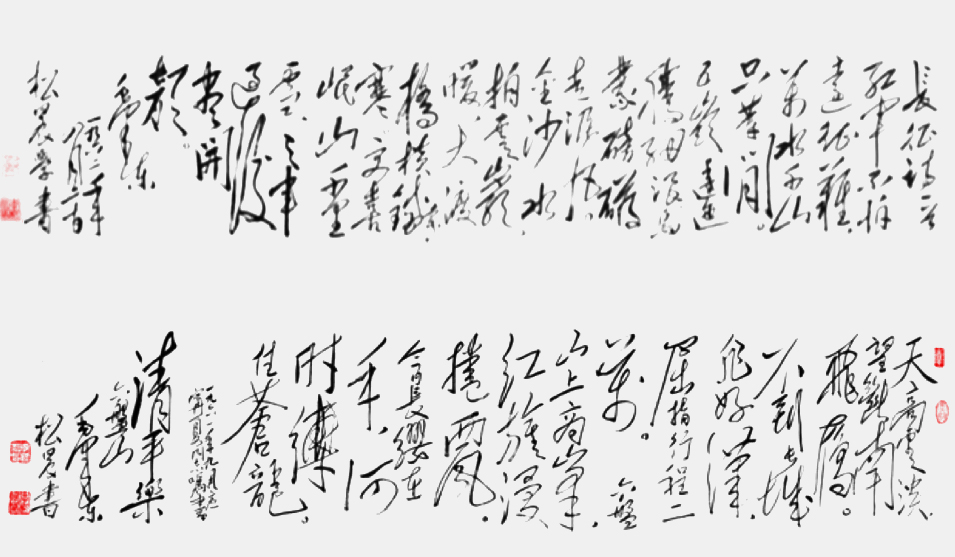 長征詩一首
紅軍不怕
遠征難，
萬水千山
只等閒。
五嶺逶迤
騰細浪，烏
蒙磅礴
走泥丸。
金沙水
拍雲崖
暖，大渡
橋橫鐵索
寒。更喜
岷山千里
雪，三軍
過後
盡開
顏。
毛澤東
一九六二年
書
天高雲淡，
望斷南
飛雁。
不到長城
非好漢，
屈指行程二
萬。
六盤
山上高峰，
紅旗漫
捲西風。
今日長纓在
手，何
時縛
住蒼龍。
一九六一年九月
寧夏同志囑書
清平樂
六盤山
毛澤東
書